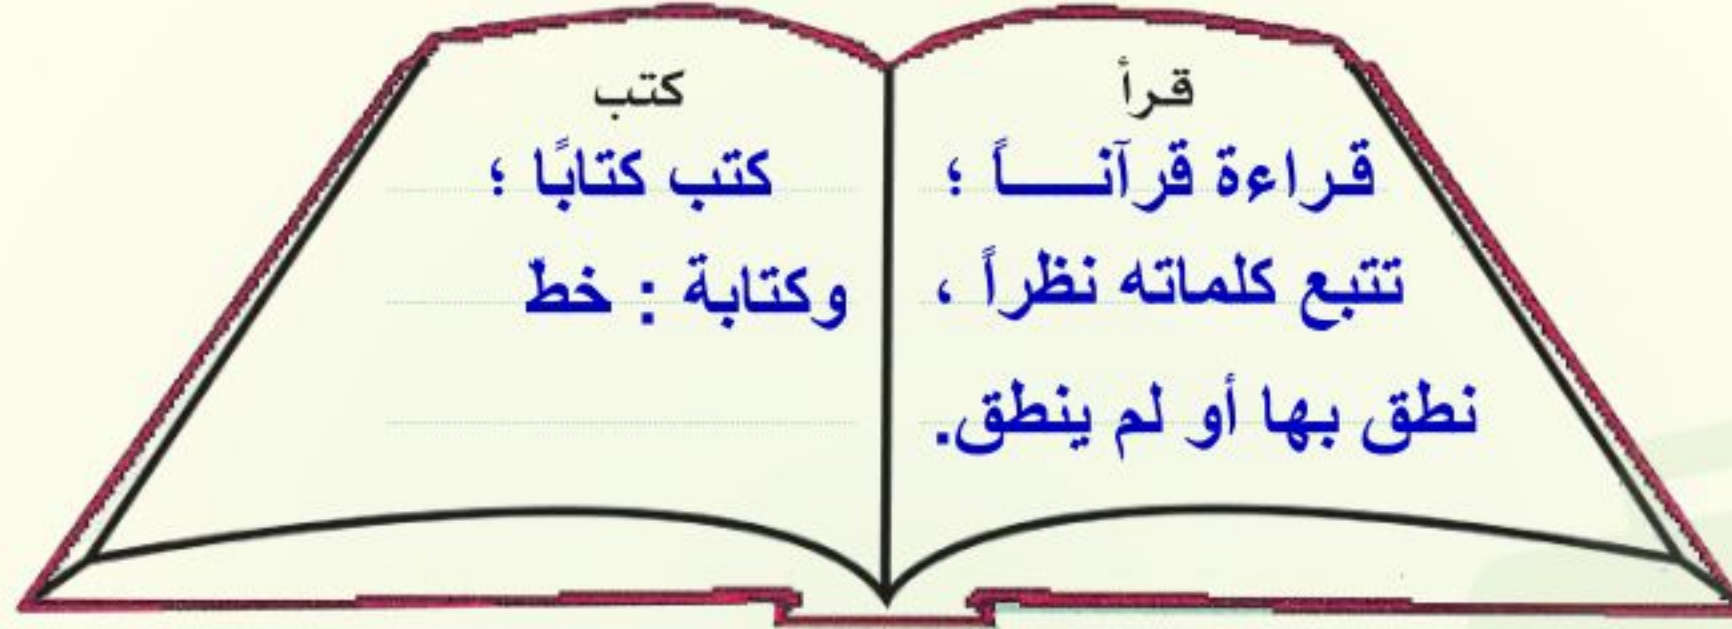 قرأ
قراءة قرآنــــاً ؛
تتبع كلماته نظراً ،
نطق بها أو لم ينطق.
كتب
كتب كتابًا ؛
وكتابة : خطّ